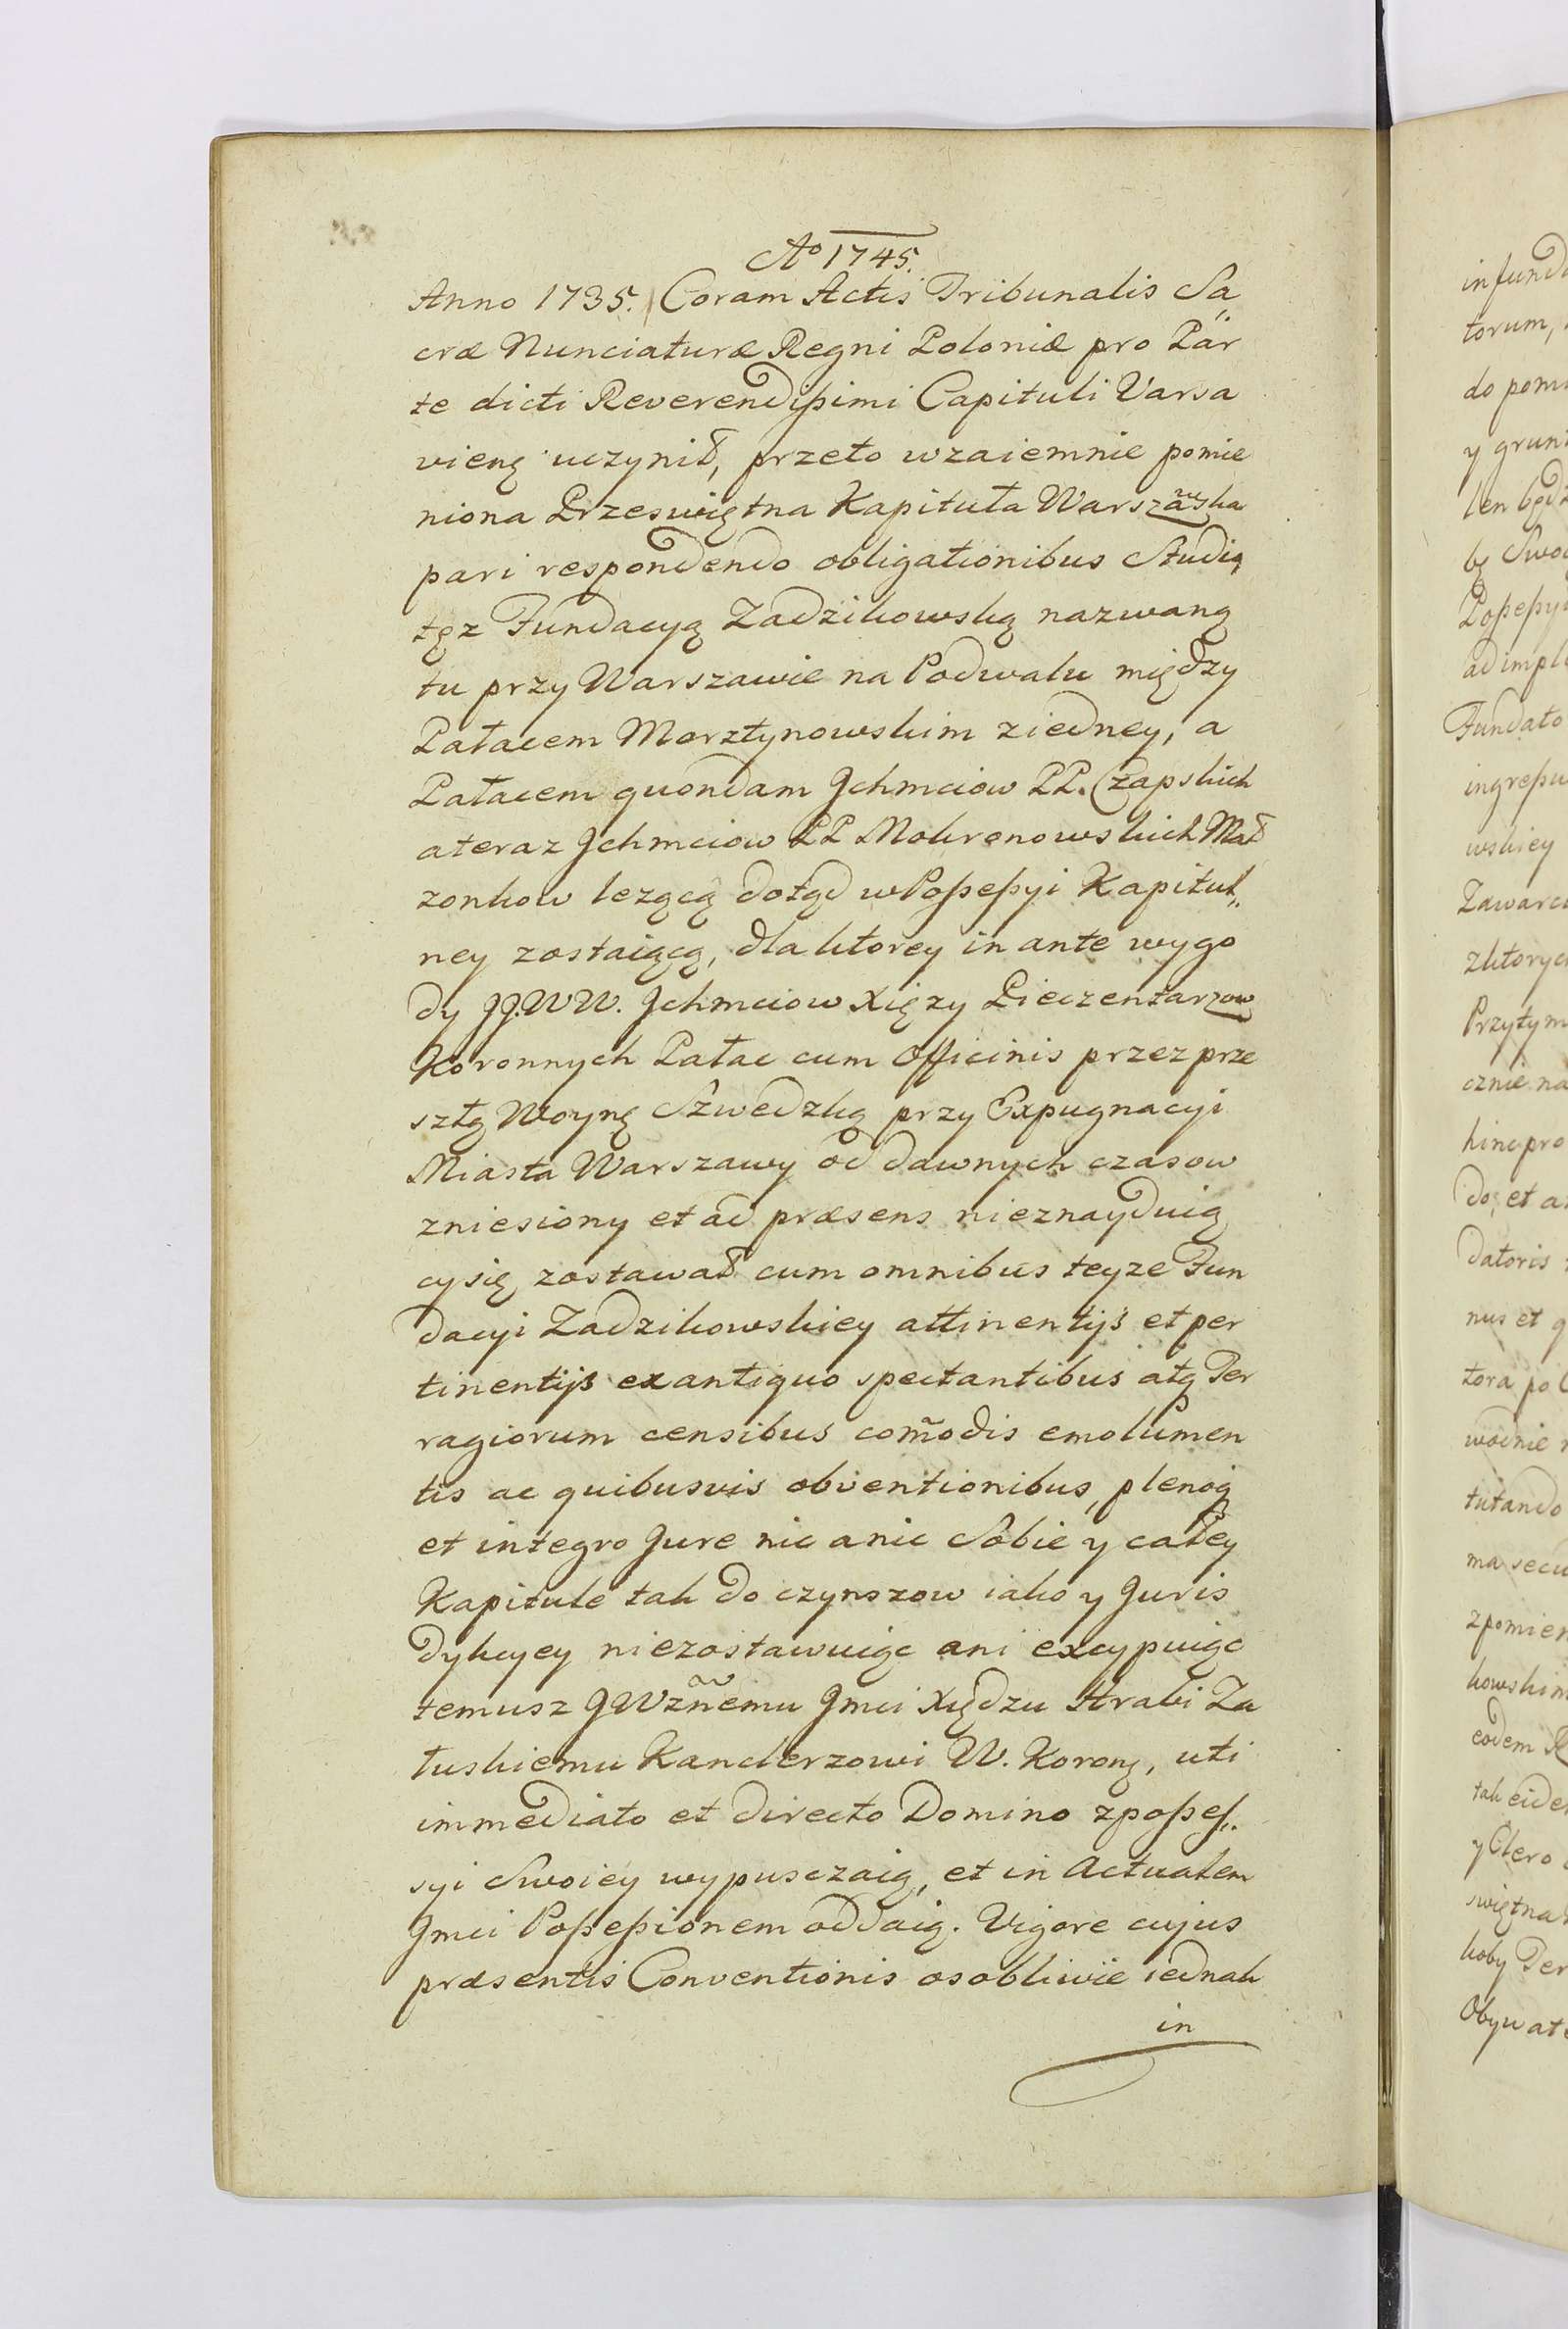 Ao 1745.
Anno 1735. Coram Actis Tribunalis Sa„
cræ Nunciaturæ Regni Poloniæ pro Par
te dicti Reverendißimi Capituli Varsa
vienę uczynił, przeto wzaiemnie pomie
niona Przeswiętna Kapituła Warszawska
pari respondendo obligationibus Studią
tęz Fundacyą Zadzikowską nazwaną
tu przy Warszawie na Podwalu między
Pałacem Morztynowskim ziedney, a
Pałacem quondam Jchmciow PP. Czapskich
ateraz Jchmciow PP Mokronowskich Mał
zonkow lezącą dotąd wPoßeßyi Kapitul„
ney zostaiącą, dla ktorey in ante wygo
dy JJ.WW. Jchmciow Xięzy Pieczentarzow
Koronnych Pałac cum Officinis przez prze
szłą Woynę Szwedzką przy Expugnacyi
Miasta Warszawy od dawnych czasow
zniesiony et ad præsens nieznayduią
cysię zostawał cum omnibus teyze Fun
dacyi Zadzikowskiey attinentijs et per
tinentijs exantiquo spectantibus atq Ter
ragiorum censibus com̃odis emolumen
tis ac quibusvis obventionibus, plenoq
et integro Jure nic anic Sobie y całey
Kapitule tak do czynszow iako y Juris
dykcyey niezostawuiąc ani excypuiąc
temusz JWznemu Jmci Xiędzu Hrabi Za
łuskiemu Kanclerzowi W. Koronę, uti
immediato et directo Domino zpoßeß„
syi Swoiey wypusczaią, et in Actualem
Jmci Poßeßionem oddaią. Vigore cujus
præsentis Conventionis osobliwie iednak
in